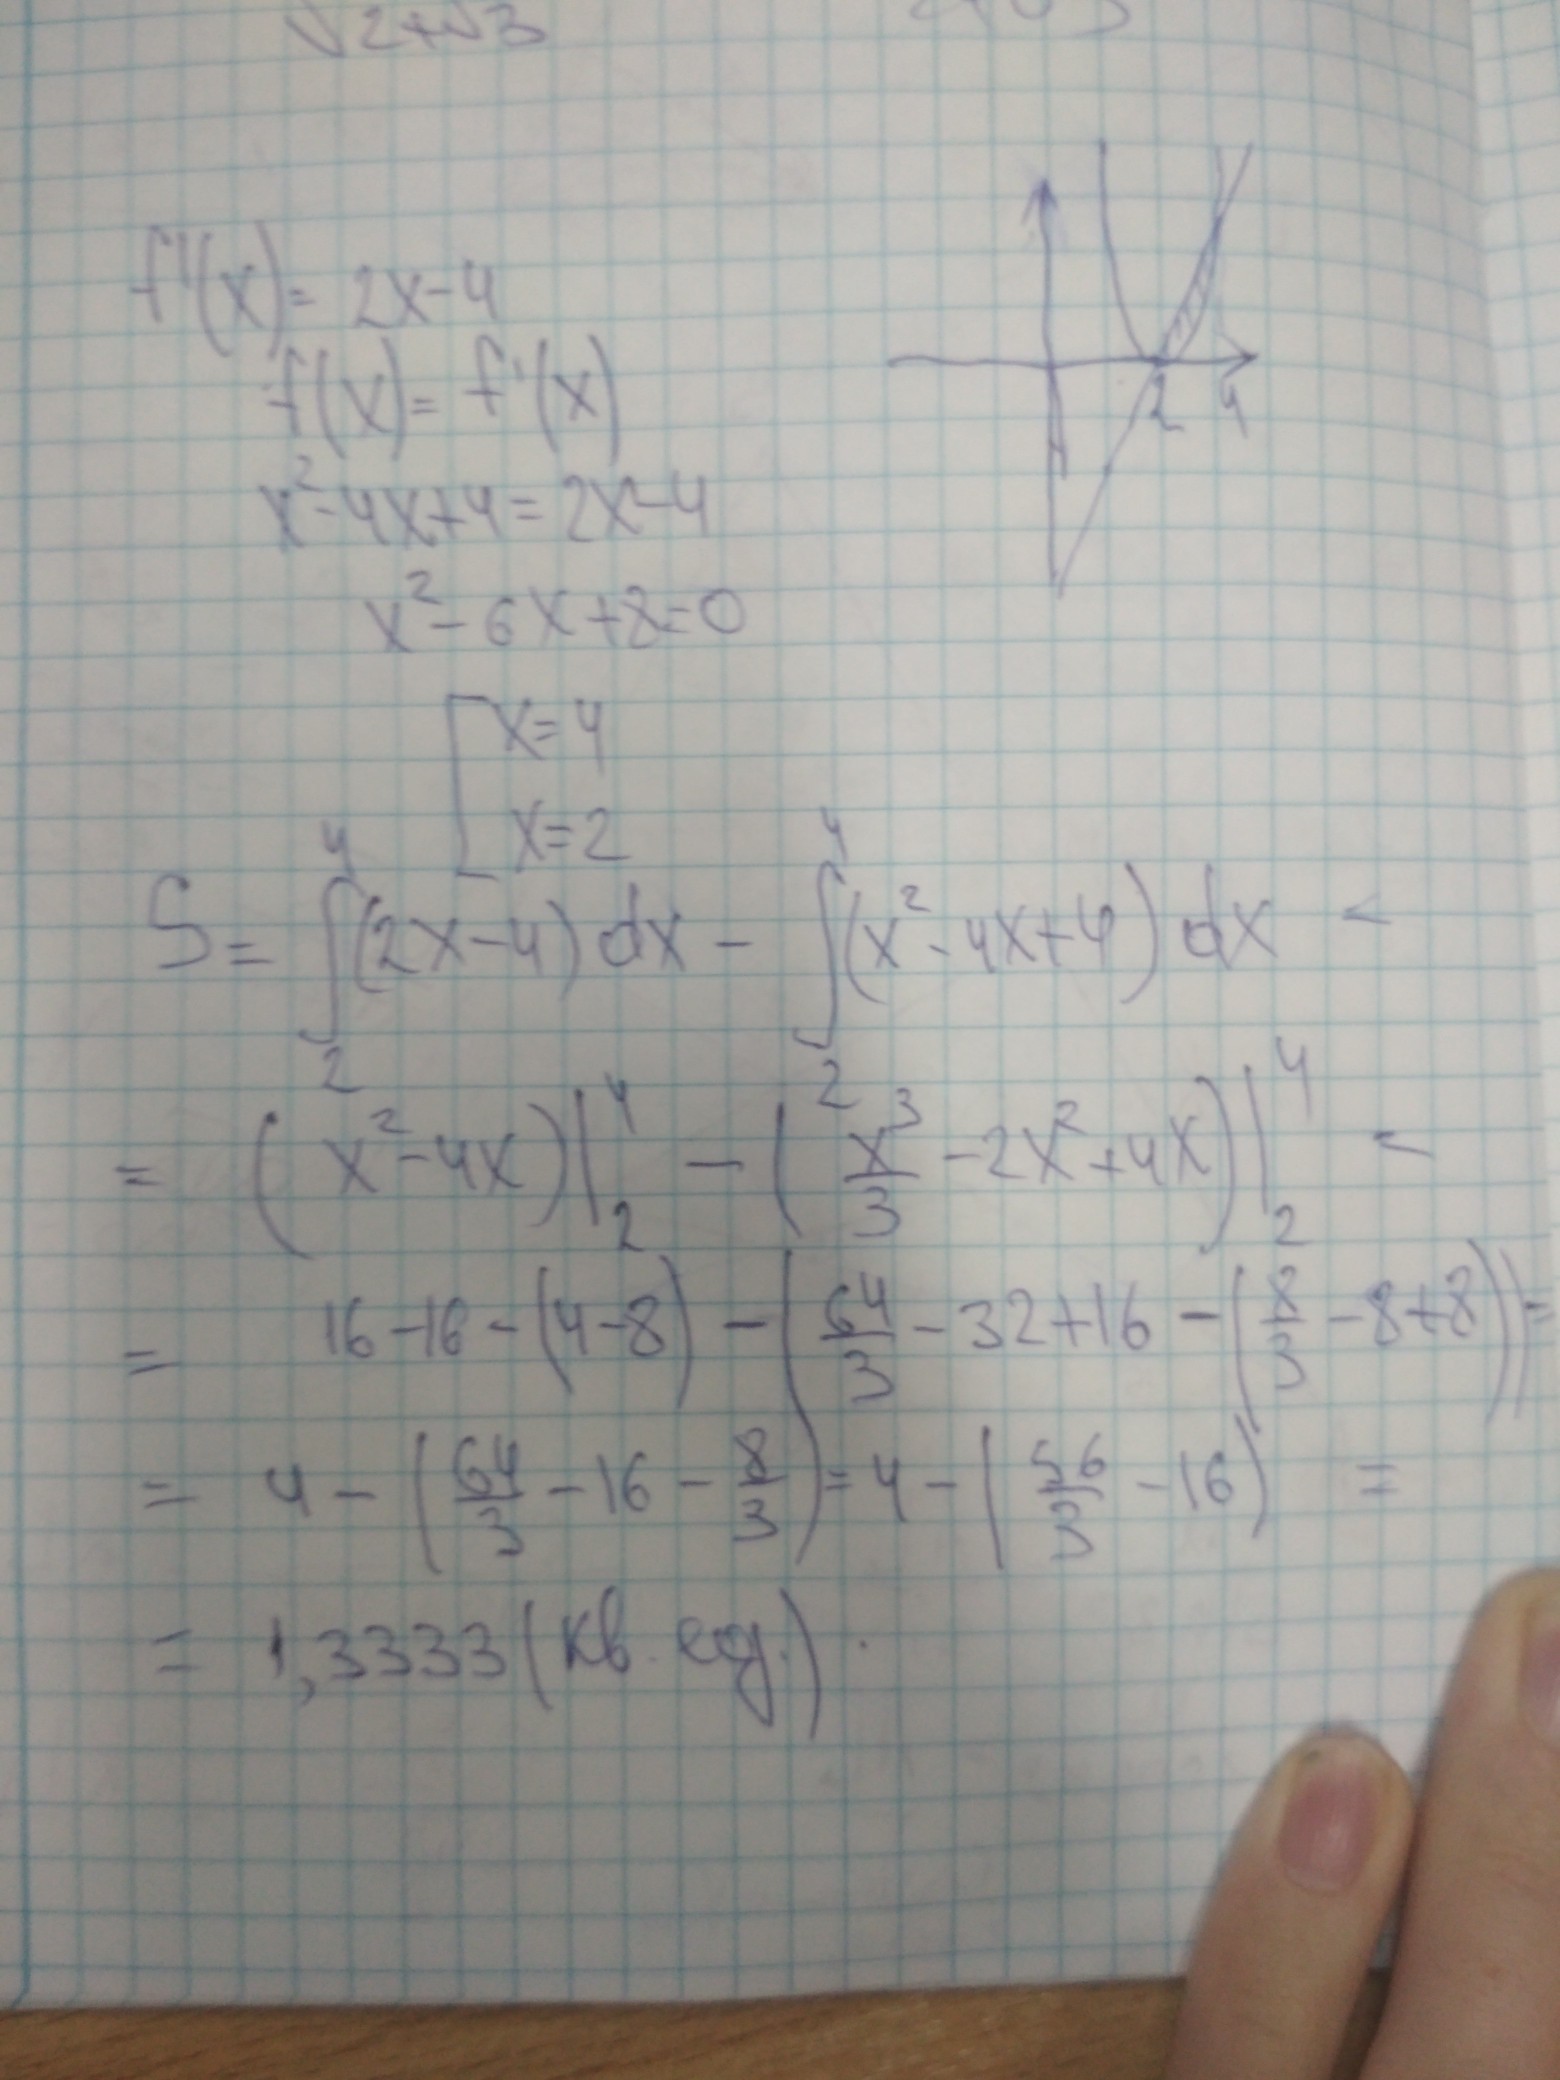 √2+√3
f'(x)= 2x-4
f(x)= f'(x)
x²-4x+4=2x-4
x²-6x+8=0
x=4
x=2
2 4
S= ∫₂⁴(2x-4)dx - ∫₂⁴(x²-4x+4)dx =
= (x²-4x)|₂⁴ - (x³/3 -2x²+4x)|₂⁴ =
= 16-16-(4-8) - (64/3 -32+16 -(8/3 -8+8))=
= 4-(64/3 -16 - 8/3)= 4-(56/3 -16) =
= 1,3333(кв. ед.).